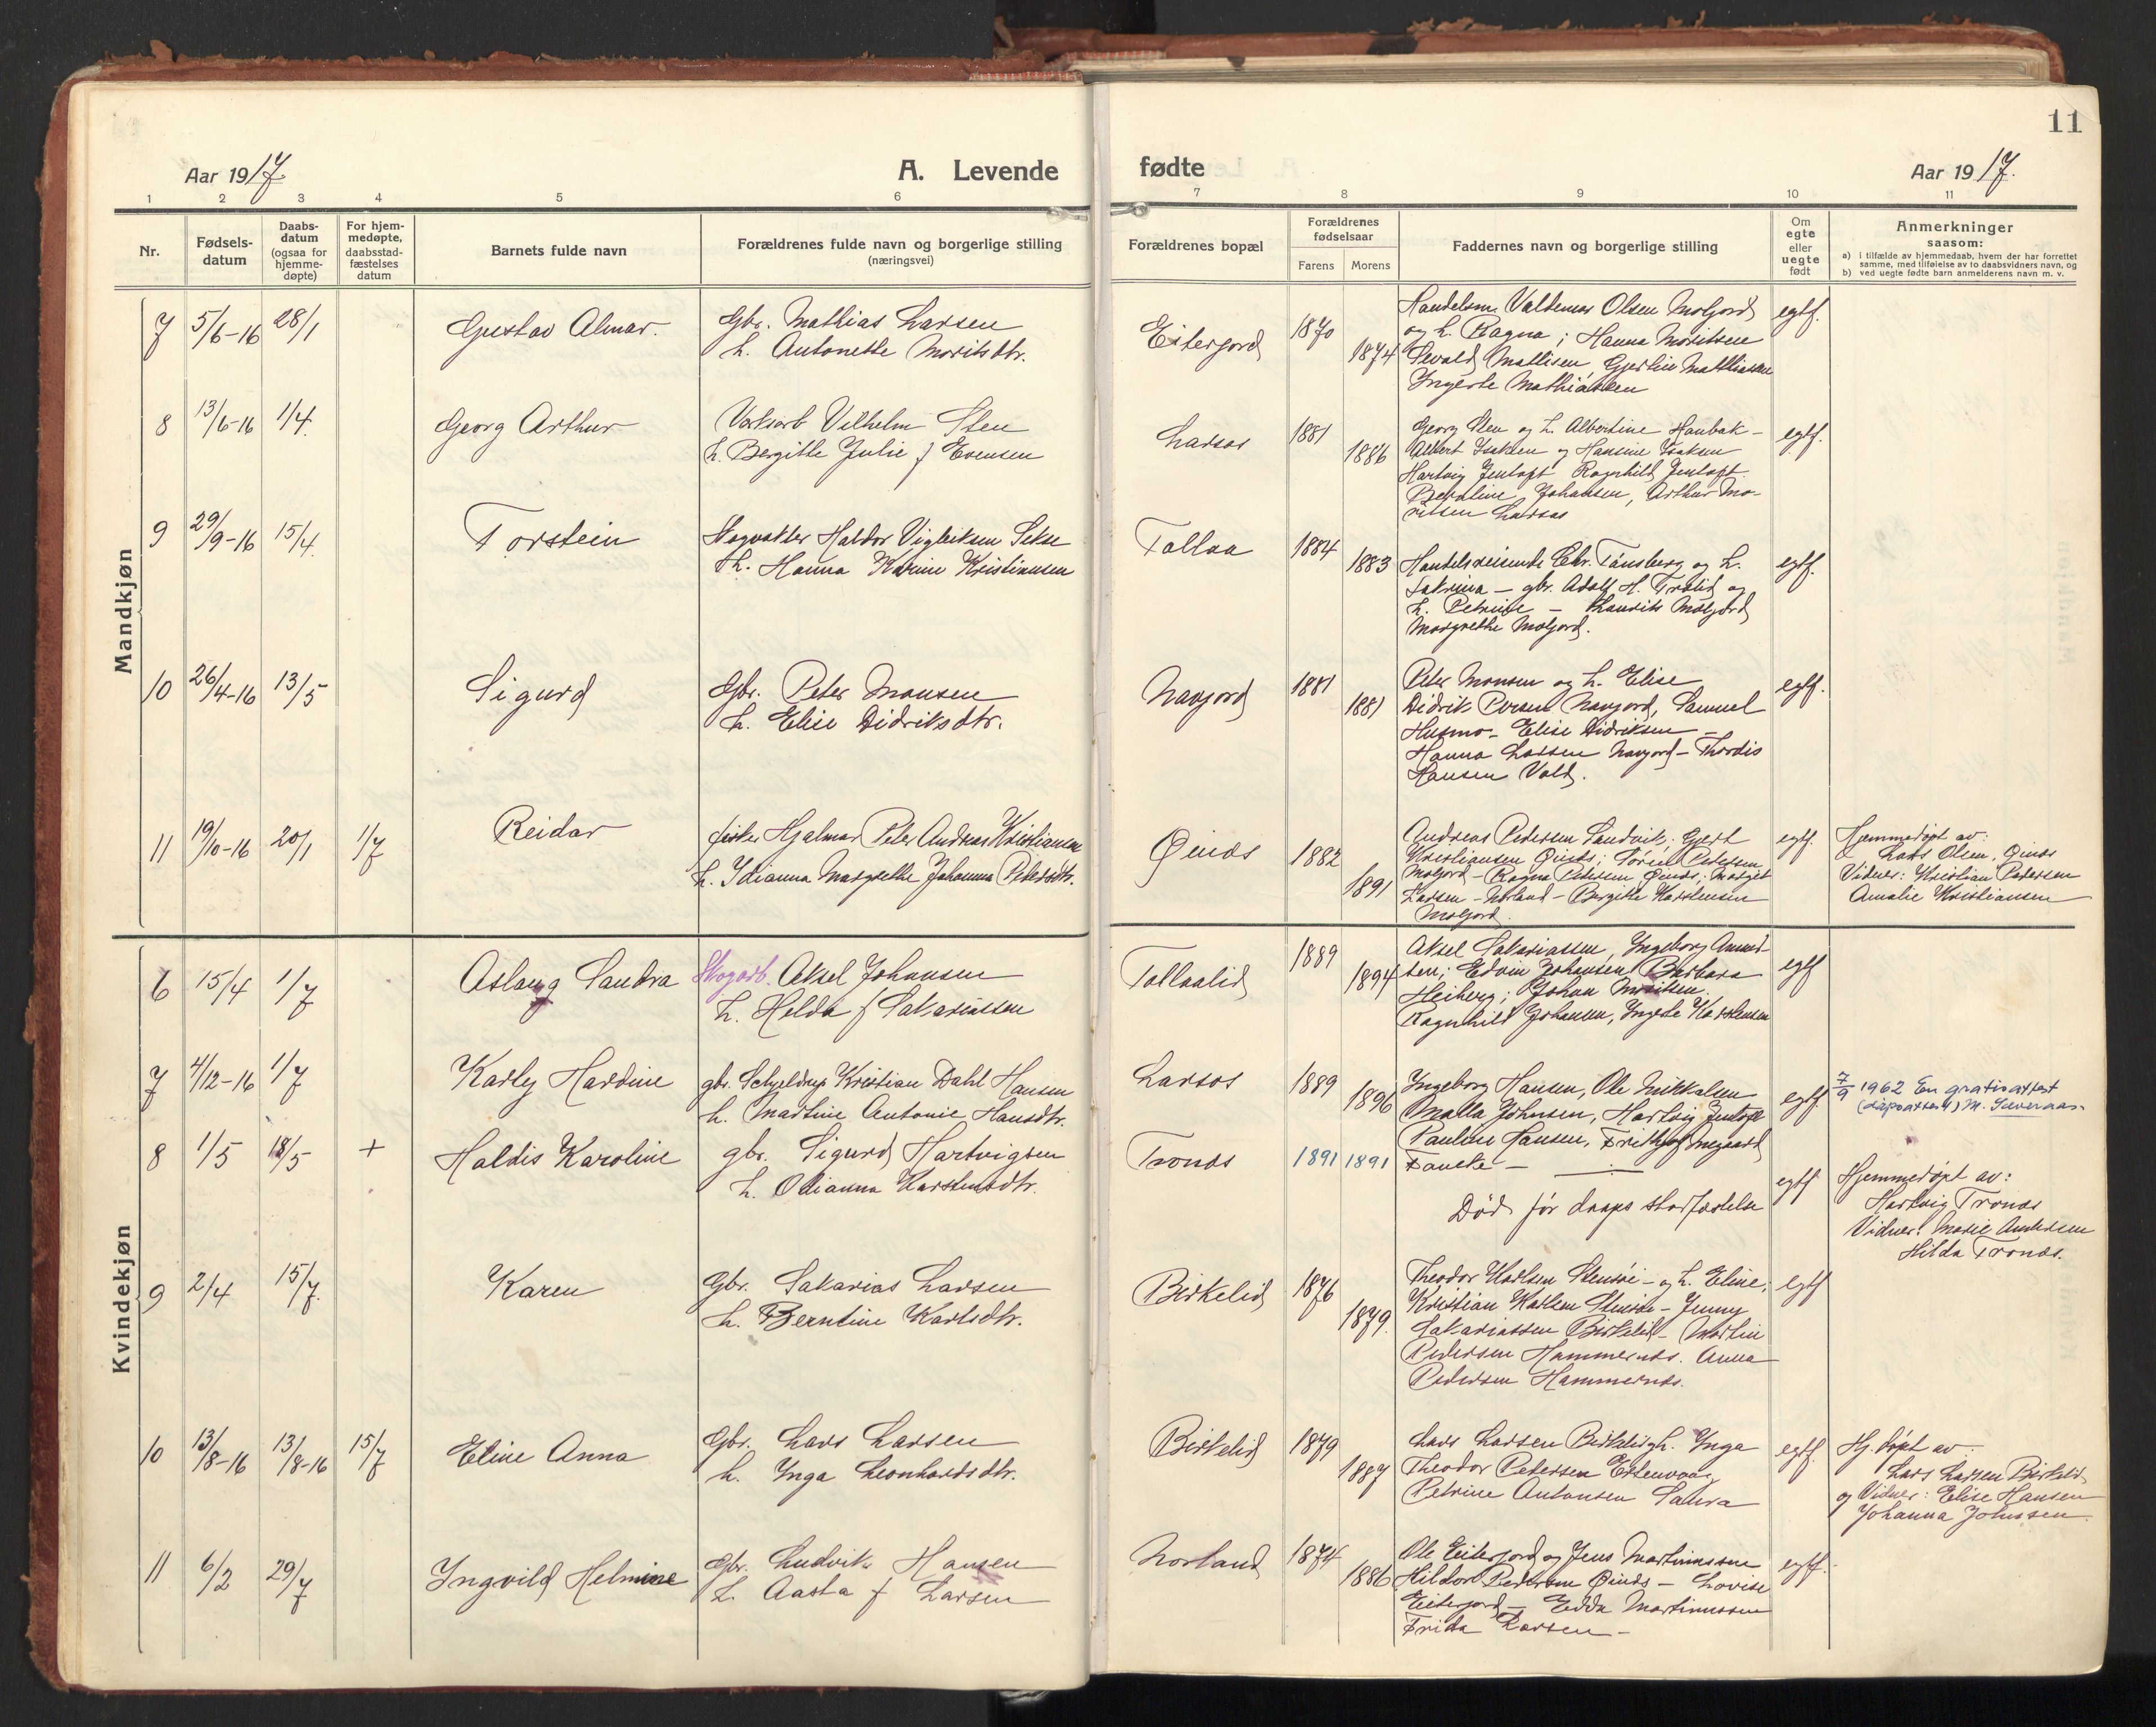 11
Aar 1917.
A. Levende
fødte
Aar 1917.
1 2 3 4 5 6 7 8 9 10 11
Nr.
Fødsels-
datum
Daabs-
datum
(ogsaa for
hjemme-
døpte)
For hjem-
medøpte,
daabsstad-
fæstelses
datum
Barnets fulde navn
Forældrenes fulde navn og borgerlige stilling
(næringsvei)
Forældrenes bopæl
Forældrenes
fødselsaar
Farens Morens
Faddernes navn og borgerlige stilling
Om
egte
eller
uegte
født
Anmerkninger
saasom:
a) i tilfælde av hjemmedaab, hvem der har forrettet
samme, med tilføielse av to daabsvidners navn, og
b) ved uegte fødte barn anmelderens navn m. v.
Mandkjøn
7 5/6-16 28/1 Gustav Almar.
Gbr. Mathias Larsen
h. Antonette Moritsdtr.
Eiterjord 1870 1874
Handelsm. Valdemar Olsen Moljord
og h. Ragna; Hanna Moritsen
Sevald Mathisen, Gjertin Mathiasen
Ingerte Mathiassen
egtf.
8 13/6-16 1/4. Georg Arthur
Vilhelm Sten
h. Bergitte Julie f Evensen
Larsos 1881 1886
Georg Sten og h. Albertine Haubak-
Albert Isaksen og Hansine Isaksen
Hartvig Jentoft Ragnhild Jentoft
Berntine Johansen, Arthur Mo-
ritsen Larsos
egtf.
9 29/9-16 15/4. Torstein
Skogvokter Haldor Vigleiksen Sekse
h. Hanna Karine Kristiansen
Tollaa 1884 1883
Handelsreisende Chr. Tønsberg og h.
Sakrina - gbr. Adolf H. Trolid og
h. Petrine - Laurits Moljord
Margrethe Moljord.
egtf.
10 26/4-16 13/5 Sigurd
Gbr. Peter Monsen
h. Elise Didriksdtr.
Navjord 1881 1881
Peter Monsen og h. Elise
Didrik Navjord, Samuel
Husmo - Elise Didriksen -
Hanna Larsen Navjord - Thordis
Hansen Vold.
egtf.
11 19/10-16 20/1 1/7 Reidar
fisker Hjalmar Peter Andreas Kristiansen
h. Idianna Margrethe Johanna Pedersdtr.
Øinæs 1882 1891
Andreas Pedersen Sandvik; Gjert
Kristiansen Øinæs; Søren Pedersen
Moljord - Ragna Pedersen Øinæs; Margit
Larsen - Norland - Bergitte Karstensen
Moljord.
egtf.
Hjemmedøpt av:
Lars Olsen, Øinæs
Vidner: Kristian Pedersen
Amalie Kristiansen
Kvindekjøn
6 15/4 1/7 Aslaug Sandra
Skogarb. Aksel Johansen
h. Helda f Sakariassen
Tollaalid 1889 1894
Aksel Sakariassen, Ingeborg Amund-
sen; Edvin Johansen Barbara
Heiberg; Johan Moritsen.
Ragnhild Johansen, Ingerte Karstensen
egtf
7 4/12-16 1/7 Karly Hardine
gbr. Schjeldrup Kristian Dahl Hansen
h. Martine Antonie Hansdtr.
Larsos 1889 1896
Ingeborg Hansen, Ole Mikkalsen
Malla Johnsen, Hartvig Jentoft
Pauline Hansen, Frithjof
Fauske -
egtf.
7/9 1962 En gratisattest
(dåpsattest) M. Séveraas.
8 1/5 18/5 + Haldis Karoline
gbr. Sigurd Hartvigsen
h. Odianna Karstensdtr.
Tronæs 1891 1891
Død før daaps stadfæstelse
egtf
Hjemmedøpt av:
Hartvig Tronæs
Vidner: Marie Andersen
Hilda Tronæs.
9 2/4 15/7. Karen
Gbr. Sakarias Larsen
h. Berntine Karlsdtr.
Birkelid 1876 1879.
Theodor Karlsen Stensøi - og h. Eline;
Kristian Karlsen Stensøi - Jenny
Sakariassen Birkelid - Martin
Pedersen Hammernæs. Anna
Pedersen Hammernæs.
egtf
10 13/8-16 13/8-16 15/7 Eline Anna
Gbr. Lars Larsen
h. Inga Leonhardsdtr.
Birkelid 1879 1887
Lars Larsen Birkelid og h. Inga
Theodor Petersen
Petrine Antonsen Saura
egtf.
Hj. døpt av:
Lars Larsen Birkelid
og Vidner: Elise Hansen
Johanna Johnssen.
11 6/2 29/7 Ingvild Helmine
Gbr. Ludvik Hansen
h. Aasta f Larsen
Norland 1874 1886
Ole Eiterjord og Jens Martinussen
Hildor Pedersen Øinæs - Lovise
Eiterjord - Edda Martinussen
Frida Larsen -
egtf.